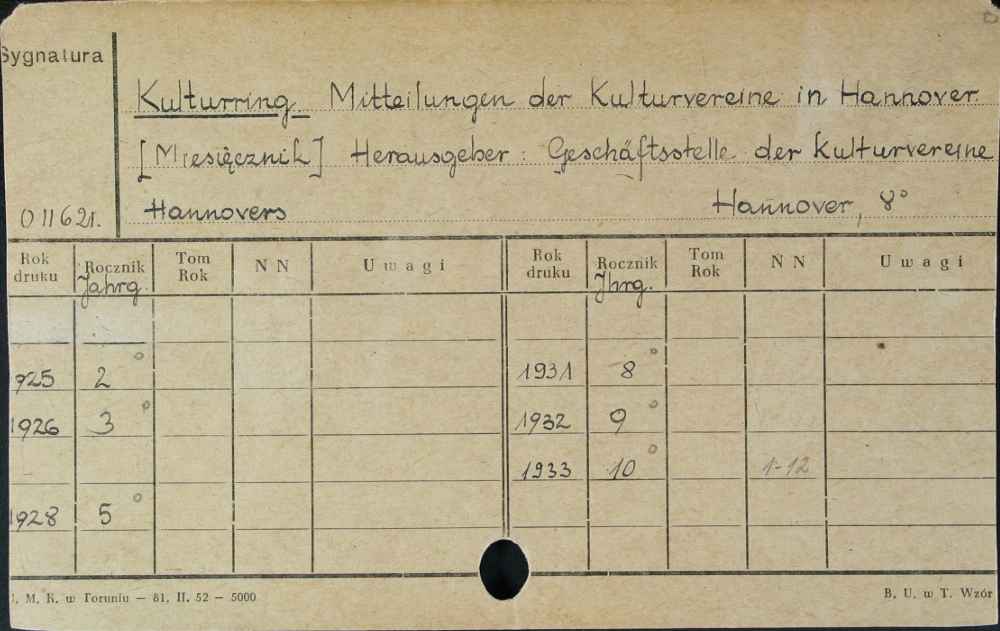 Sygnatura
Kulturring. Mitteilungen der Kulturvereine in Hannover
[Miesięcznik] Herausgeber: Geschäftsstelle der Kulturvereine
011621. Hannovers Hannover, 8°
Rok druku Rocznik Jahrg. Tom Rok NN Uwagi Rok druku Rocznik Jhrg. Tom Rok NN Uwagi
1925 2° 1931 8°
1926 3° 1932 9°
1933 10° 1-12
1928 5°
. M. K. w Toruniu — 81, II. 52 — 5000 B. U. w T. Wzór